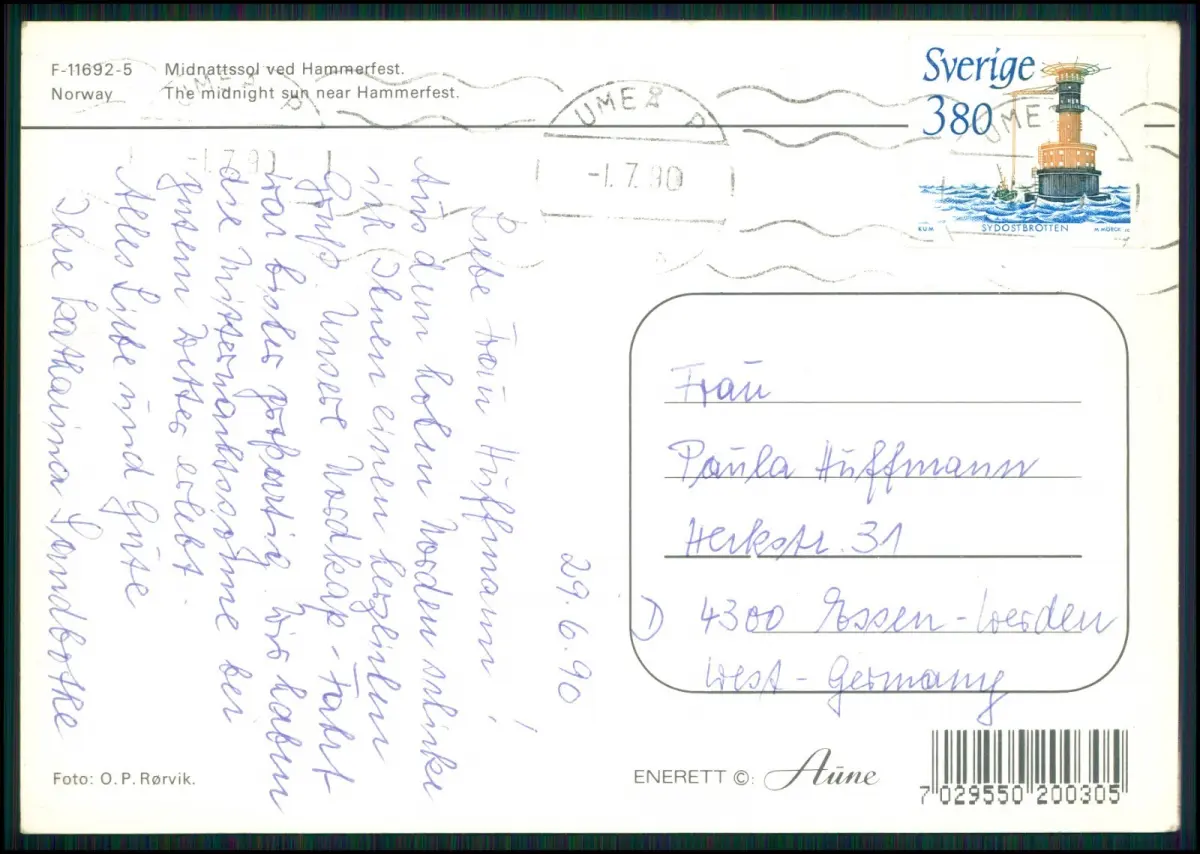 F-11692-5 Midnattssol ved Hammerfest.
Norway The midnight sun near Hammerfest.
UMEÅ P
-1.7.90
UMEÅ P
-1.7.90
UME
Sverige
380
KUM SYDOSTBROTTEN M MÖRCK SC
29.6.90
Liebe Frau Hüffmann!
Aus dem hohen Norden schicke
ich Ihnen einen herzlichen
Gruß. Unsere Nordkap-Fahrt
war bisher großartig. Wir haben
die Mitternachtssonne bei
gutem Wetter erlebt.
Alles Liebe und Gute
Ihre Katharina Sandbothe
Frau
Paula Hüffmann
Herkstr. 31
D 4300 Essen-Werden
West-Germany
Foto: O. P. Rørvik.
ENERETT ©: Aune
7 029550 200305